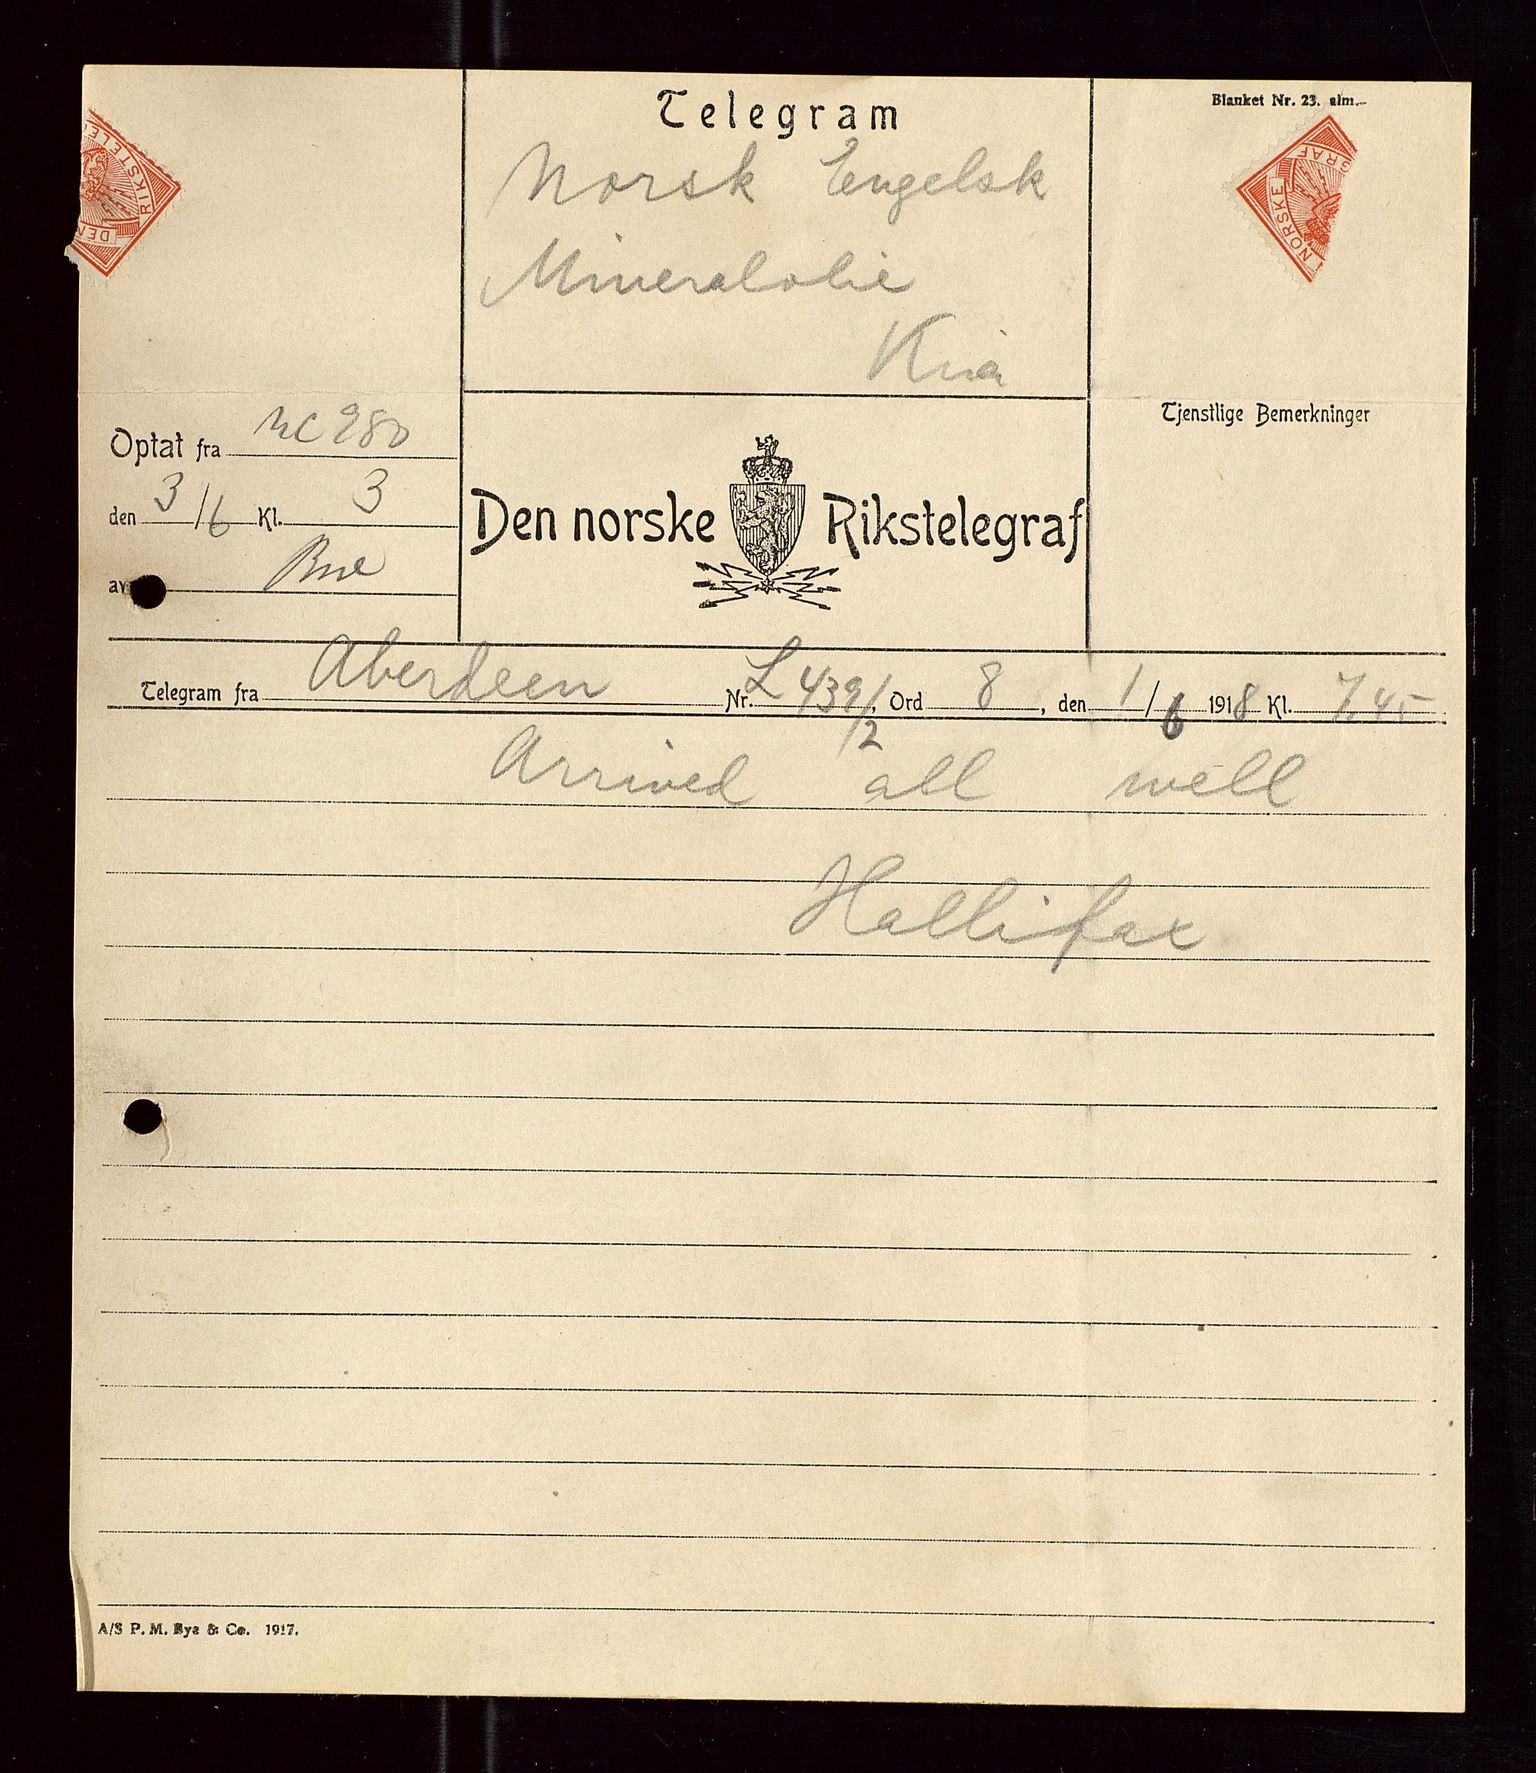 Telegram
Blanket Nr. 23. alm.
Norsk Engelsk
Mineralolie
Kria
DEN
RIKSTELEG
NORSKE
GRAF
Optat fra
den 3/6 Kl. 3
av
Den norske Rikstelegraf
Tjenstlige Bemerkninger
Telegram fra Aberdeen Nr. L 439/2, Ord 8, den 1/6 1918 Kl. 7,45
Arrived all well
Hallifax
A/S P. M. Bye & Co. 1917.